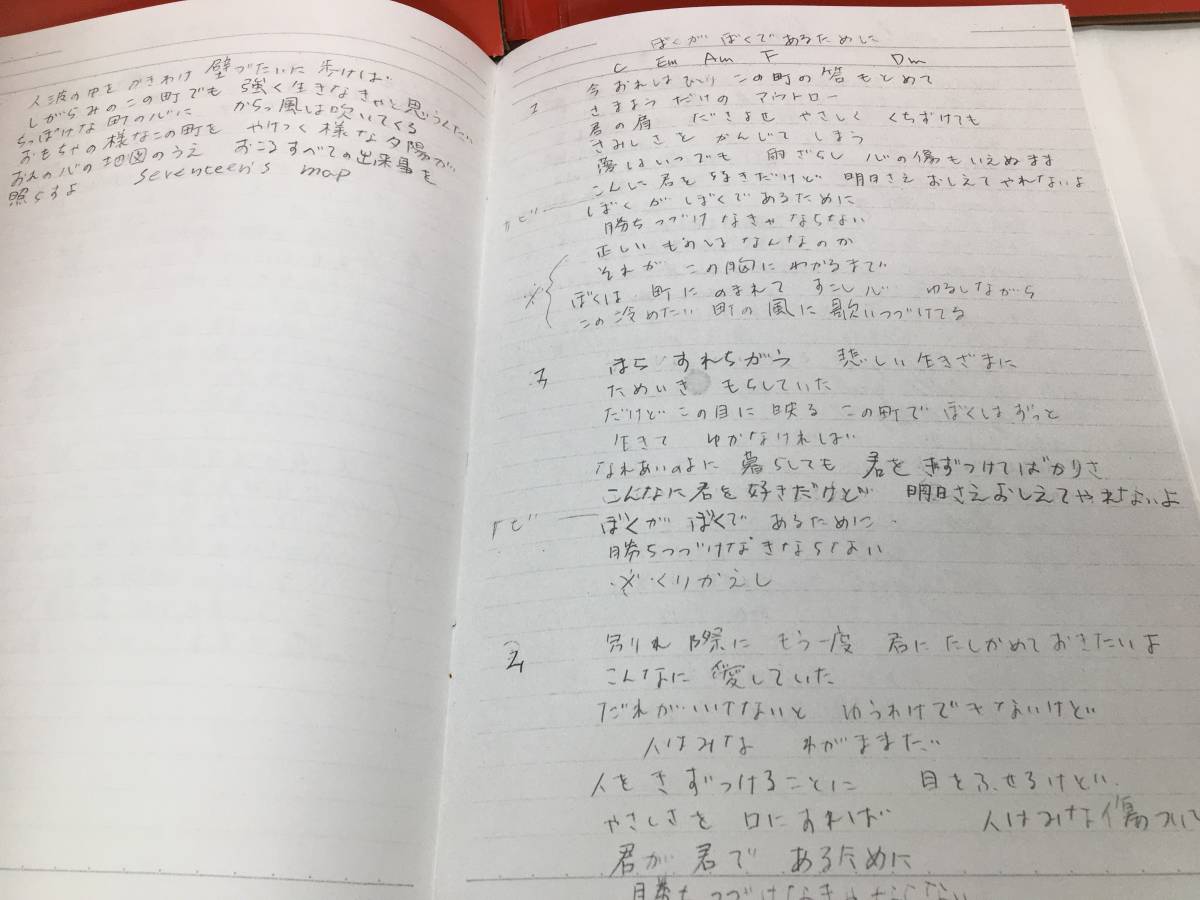 人波の中をかきわけ 壁づたいに歩けば
しがらみのこの町でも 強く生きなきゃと思うんだ
ちっぽけな町の心に からっ風は吹いてくる
おもちゃの様なこの町を やけつく様な夕陽が
おれの心の地図のうえ おこるすべての出来事を
照らすよ seventeen's map
ぼくがぼくであるために
C Em Am F Dm
1 今おれはひとり この町の答もとめて
さまようだけの アウトロー
君の肩 だきよせ やさしく くちずけても
さみしさを かんじて しまう
愛はいつでも 雨ざらし 心の傷もいえぬまま
こんに君を好きだけど 明日さえ おしえてやれないよ
サビー ぼくがぼくであるために
勝ちつづけ なきゃ ならない
正しい ものは なんなのか
それが この胸に わかるまで
※ ぼくは 町に のまれて すこし心 ゆるしながら
この 冷めたい 町の 風に 歌いつづけてる
3 ほら すれちがう 悲しい 生きざまに
ためいき もらしていた
だけど この目に 映る この町で ぼくはずっと
生きて ゆかなければ
なれあいのよに 暮らしても 君を きずつけてばかりさ
こんなに君を好きだけど 明日さえおしえてやれないよ
サビ ぼくが ぼくで あるために
勝ちつづけなきならない
※くりかえし
2 別れ際に もう一度 君に たしかめておきたいよ
こんなに 愛していた
だれが いけないと ゆうわけでもないけど
人はみな わがままだ
人を きずつけることに 目をふせるけど
やさしさを 口にすれば 人はみな傷ついて
君が 君で あるために
勝ちつづけなきゃならない